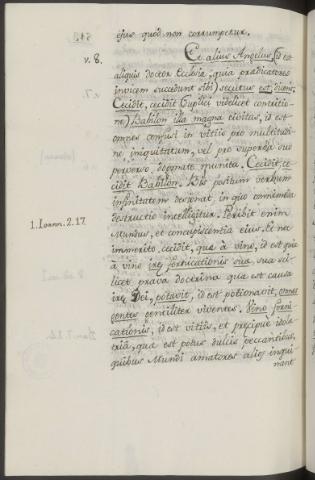 ejus quòd non corrumpetur.
v. 8. Et alius Angelus (id est
aliquis doctor Ecclesiæ, quia prædicatores
invicem succedunt sibi) secutus est dicens:
Cecidit, cecidit (duplici videlicet contritio-
ne) Babilon illa magna civitas, id est
omnes confusi in vitiis pro multitudi-
ne iniquitatum, vel pro superbia suo
perverso dogmate munita. Cecidit, ce-
cidit Babilon. Bis positum verbum
infinitatem designat, in quo omnimoda
destructio intelligitur. Peribit enim
1. Ioann. 2. 17. Mundus, et concupiscentia eius. Et ne
immerito cecidit, quæ à vino, id est quia
à vino iræ fornicationis suæ, sua sci-
licet prava doctrina quæ est causa
iræ Dei, potavit, id est potionavit, omnes
gentes gentiliter viventes. Vino forni-
cationis, id est vitiis, et præcipuè idola-
triâ, quæ est potus dulcis peccantibus,
quibus Mundi amatores alios inqui-
nant